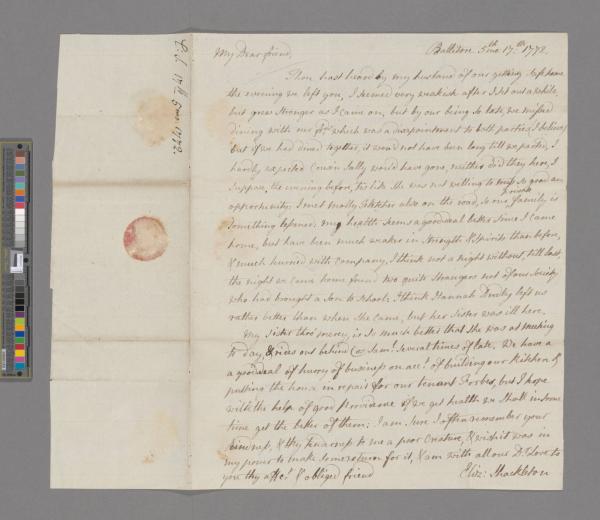 E. S. 17th 5 mo 1772.
My Dear friend, Ballitore. 5th mo 17th 1772.
Thou hast heard by my husband of our getting safe home
the evening we left you, I seemed very weakish after I set out a while,
but grew stronger as I came on, but by our being so late, we missed
dining with our frds which was a disapointment to both parties, I believe,
but if we had dined together, it would not have been long till we parted, I
hardly expected Cousin Sally would have gone, neither did they here, I
suppose, the evening before, tis like she was not willing to miss so good an
opportunity; I met Molly Fletcher also on the road, so our family is
something lessened. my health seems a good deal better since I came
home, but have been much weaker in strength & spirits than before,
& much hurried with company, I think not a night without, till last,
the night we came home found two quite strangers not of our society
who had brought a son to school; I think Hannah left us
rather better than when she came, but her Sister was ill here.
My sister thro' mercy, is so much better that she was at meeting
to day, & rides out behind Cos: Saml. several times of late. We have a
a good deal of hurry of business on acct. of building our kitchen &
putting the house in repair for our tenant Forbes, but I hope
with the help of good Providence if we get health we shall in some
time get the better of them; I am sure I often remember your
kindness, & thy tenderness to me a poor creature, & wish it was in
my power to make some return for it, & am with all our Dr. Love to
you thy affec: & obliged friend Eliz: Shackleton